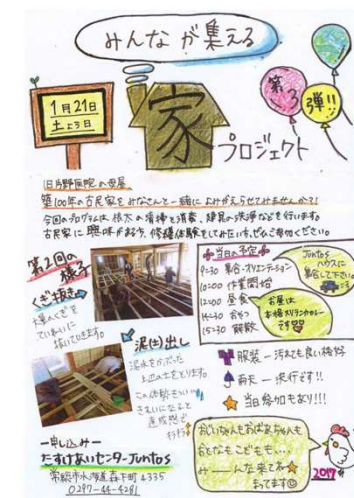 みんなが集える
1月21日
土よう日
家
プロジェクト
第3弾!!
旧片野医院の母屋
築100年の古民家をみなさんと一緒によみがえらせてみませんか?!
今回のプログラムは根太の清掃と消毒、建具の洗浄などを行います。
古民家に興味がある方、修繕体験をしてみたい方、ぜひご参加ください。
第2回の様子
くぎ抜き
大量のくぎを
ていねいに
抜いていきます。
泥出し
泥水をかぶった
土辺の土をとります。
きれいになると
達成感で
当日の予定
9:30 集合・オリエンテーション
10:00 作業開始
12:00 昼食
14:30 おやつ
15:30 解散
Juntos
ハウスに
集合して下さい。
お昼は
本場スリランカカレー
です
服装 - 汚れても良い格好
雨天 - 決行です!!
当日参加もあり!!!
おじいちゃんもおばあちゃんも
おとなもこどもも...
み――んな来てね
まってます
2017
―申し込み―
たすけあいセンターJuntos
常総市水海道森下町4335
0297-44-4281